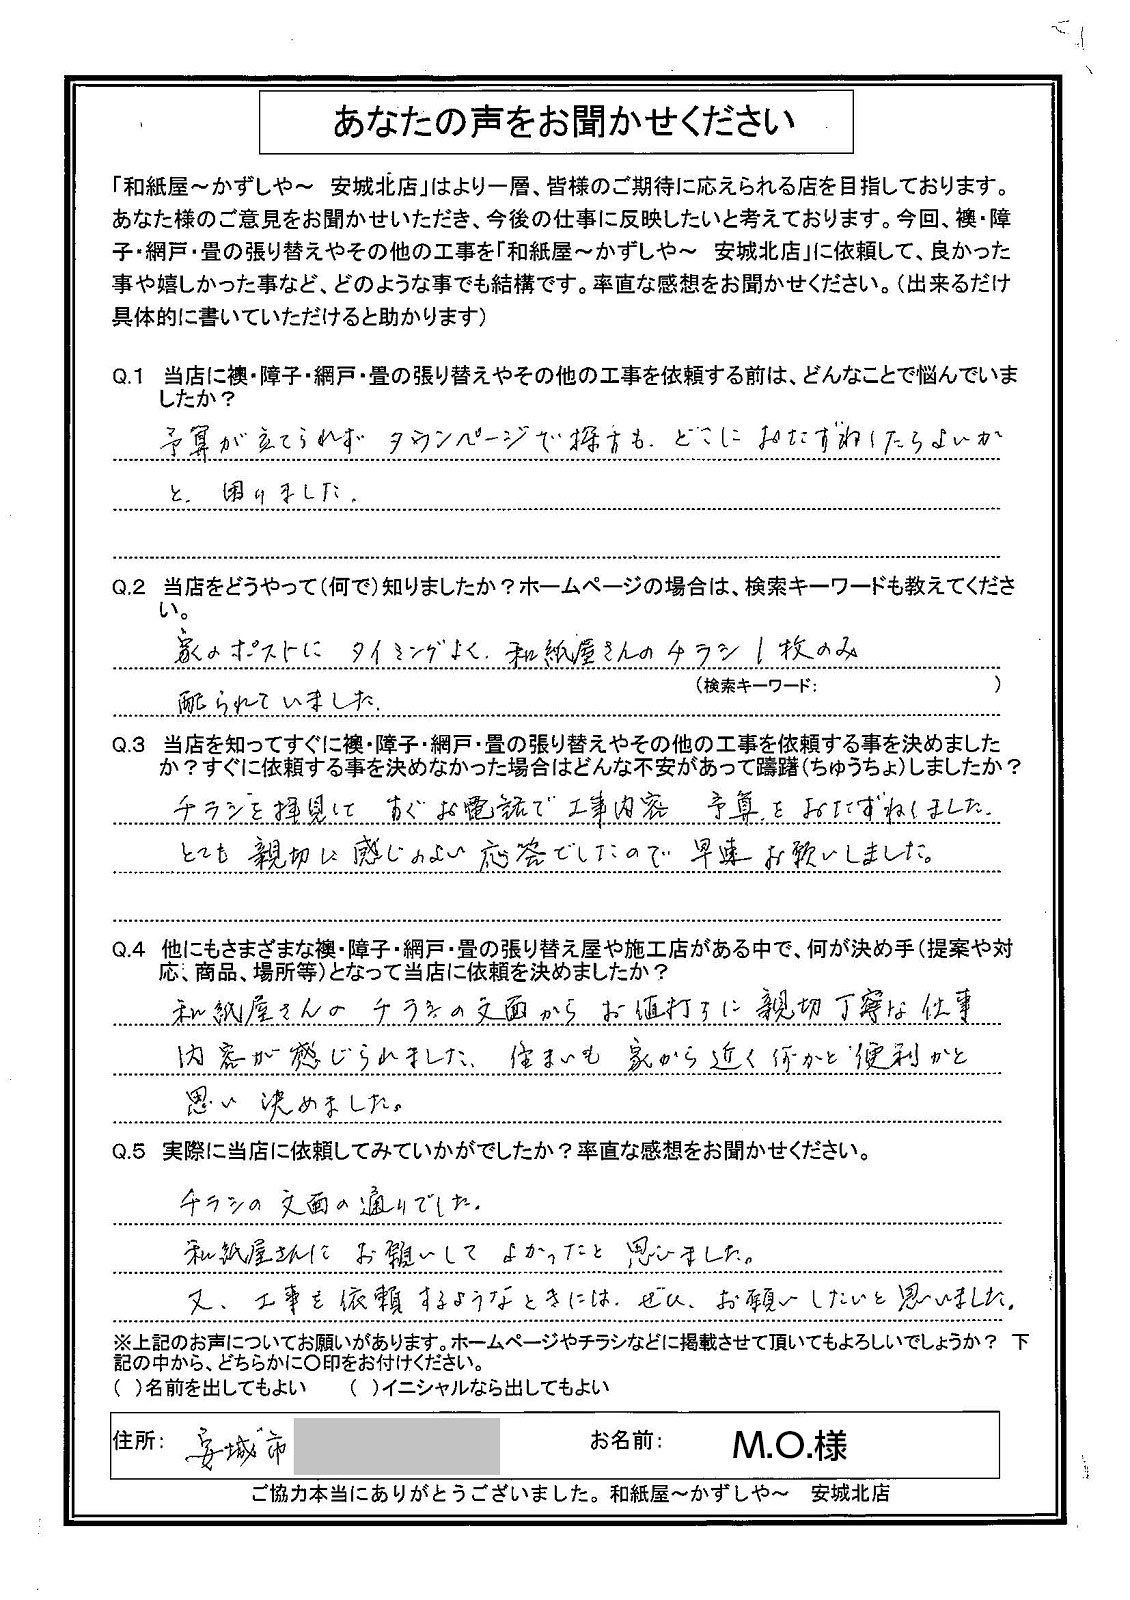 あなたの声をお聞かせください
「和紙屋～かずしや～　安城北店」はより一層、皆様のご期待に応えられる店を目指しております。
あなた様のご意見をお聞かせいただき、今後の仕事に反映したいと考えております。今回、襖・障
子・網戸・畳の張り替えやその他の工事を「和紙屋～かずしや～　安城北店」に依頼して、良かった
事や嬉しかった事など、どのような事でも結構です。率直な感想をお聞かせください。（出来るだけ
具体的に書いていただけると助かります）
Q.1　当店に襖・障子・網戸・畳の張り替えやその他の工事を依頼する前は、どんなことで悩んでいま
したか？
予算が立てられず タウンページで探す も、どこに おたずねしたらよいか
と、困りました。
Q.2　当店をどうやって（何で）知りましたか？ホームページの場合は、検索キーワードも教えてくださ
い。
家のポストに タイミングよく、和紙屋さんのチラシ１枚のみ
（検索キーワード：　　　　　　　　）
配られていました。
Q.3　当店を知ってすぐに襖・障子・網戸・畳の張り替えやその他の工事を依頼する事を決めました
か？すぐに依頼する事を決めなかった場合はどんな不安があって躊躇（ちゅうちょ）しましたか？
チラシを拝見して すぐお電話で工事内容 予算、をおたずねしました。
とても親切に感じのよい応答でしたので早速お願いしました。
Q.4　他にもさまざまな襖・障子・網戸・畳の張り替え屋や施工店がある中で、何が決め手（提案や対
応、商品、場所等）となって当店に依頼を決めましたか？
和紙屋さんの チラシの文面から お値打ちに親切丁寧な仕事
内容が感じられました、住まいも 家から近く何かと便利かと
思い 決めました。
Q.5　実際に当店に依頼してみていかがでしたか？率直な感想をお聞かせください。
チラシの文面の通りでした。
和紙屋さんに お願いして よかったと 思いました。
又、工事を依頼するようなときには、ぜひ、お願いしたいと思いました。
※上記のお声についてお願いがあります。ホームページやチラシなどに掲載させて頂いてもよろしいでしょうか？　下
記の中から、どちらかに〇印をお付けください。
（　）名前を出してもよい　　（　）イニシャルなら出してもよい
住所：　安城市　　お名前：　M.O.様
ご協力本当にありがとうございました。和紙屋～かずしや～　安城北店